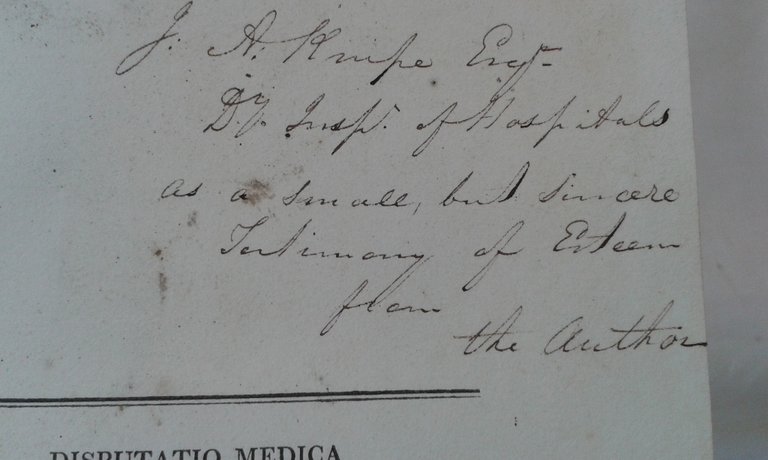 J. A. Knipe Esqr.
Dy. Inspr. of Hospitals
as a small, but sincere
Testimony of Esteem
from
the Author
DISPUTATIO MEDICA